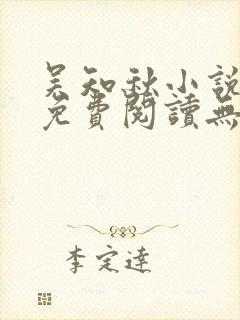 吴知秋小說
免費閱讀無
李定達